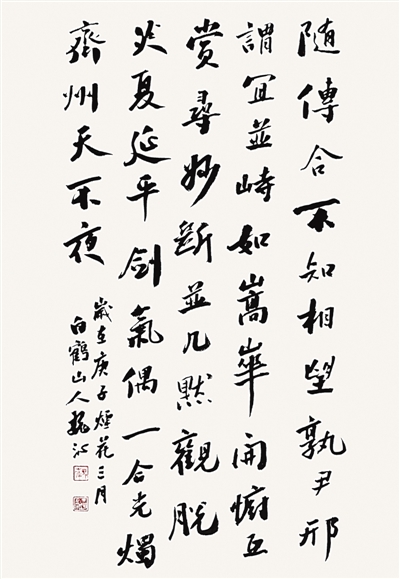 随傳合不知相望孰尹邢
謂宜並峙如嵩華開幮互
賞尋妙斷並几默觀脫
夏延平劍氣偶一合光燭
齊州天不夜
歲在庚子煙花三月
白鶴山人魏